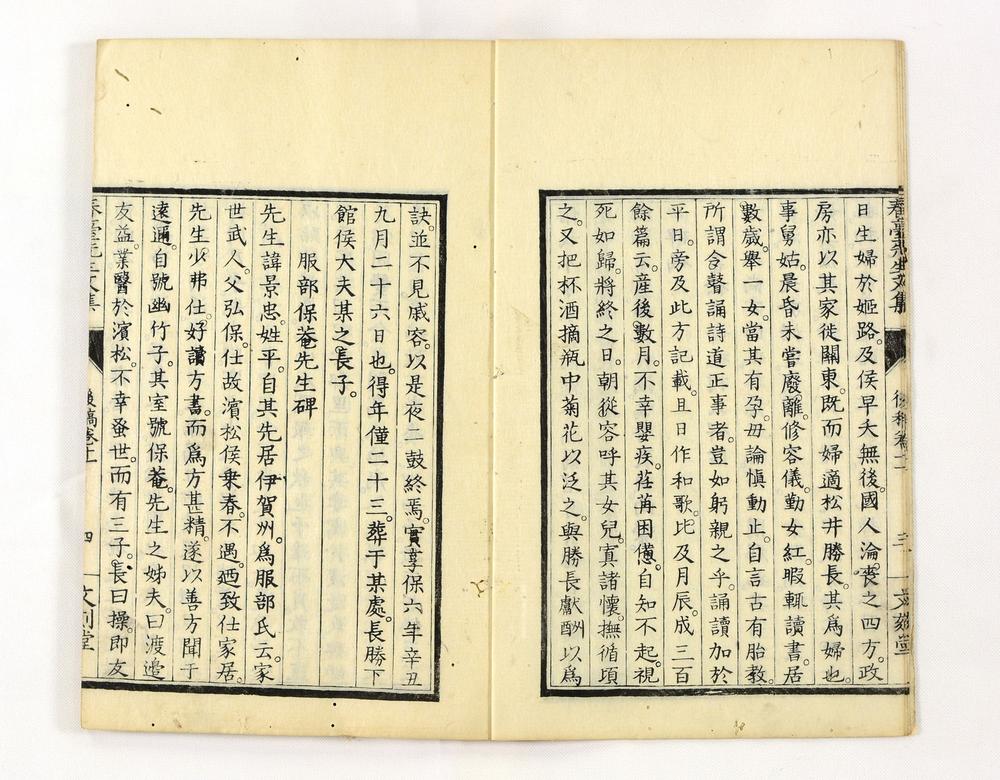 日生婦於姬路。及侯早夭無後。國人淪喪之四方。政
房亦以其家徙關東。既而婦適松井勝長。其爲婦也。
事舅姑。晨昏未嘗廢離。修容儀。勤女紅。暇輒讀書。居
數歲。舉一女。當其有孕。毋論愼動止。自言古有胎敎。
所謂令瞽誦詩道正事者。豈如躬親之乎。誦讀加於
平日。旁及此方記載。且日作和歌。比及月辰。成三百
餘篇云。產後數月。不幸嬰疾。荏苒困憊。自知不起。視
死如歸。將終之日。朝從容呼其女兒。寘諸懷。撫循項
之。又把杯酒摘瓶中菊花以泛之。與勝長獻酬以爲
春臺先生文集
後稿卷十
三
文刻堂
訣。並不見戚容。以是夜二鼓終焉。實享保六年辛丑
九月二十六日也。得年僅二十三。葬于某處。長勝下
館侯大夫某之長子。
服部保菴先生碑
先生諱景忠。姓平。自其先居伊賀州。爲服部氏云。家
世武人。父弘保。仕故濱松侯乗春。不遇。廼致仕家居。
先生少弗仕。好讀方書。而爲方甚精。遂以善方聞于
遠邇。自號幽竹子。其室號保菴。先生之姊夫。曰渡邉
友益。業醫於濱松。不幸蚤世。而有三子。長曰操。卽友
春臺先生文集
後稿卷十
四
文刻堂